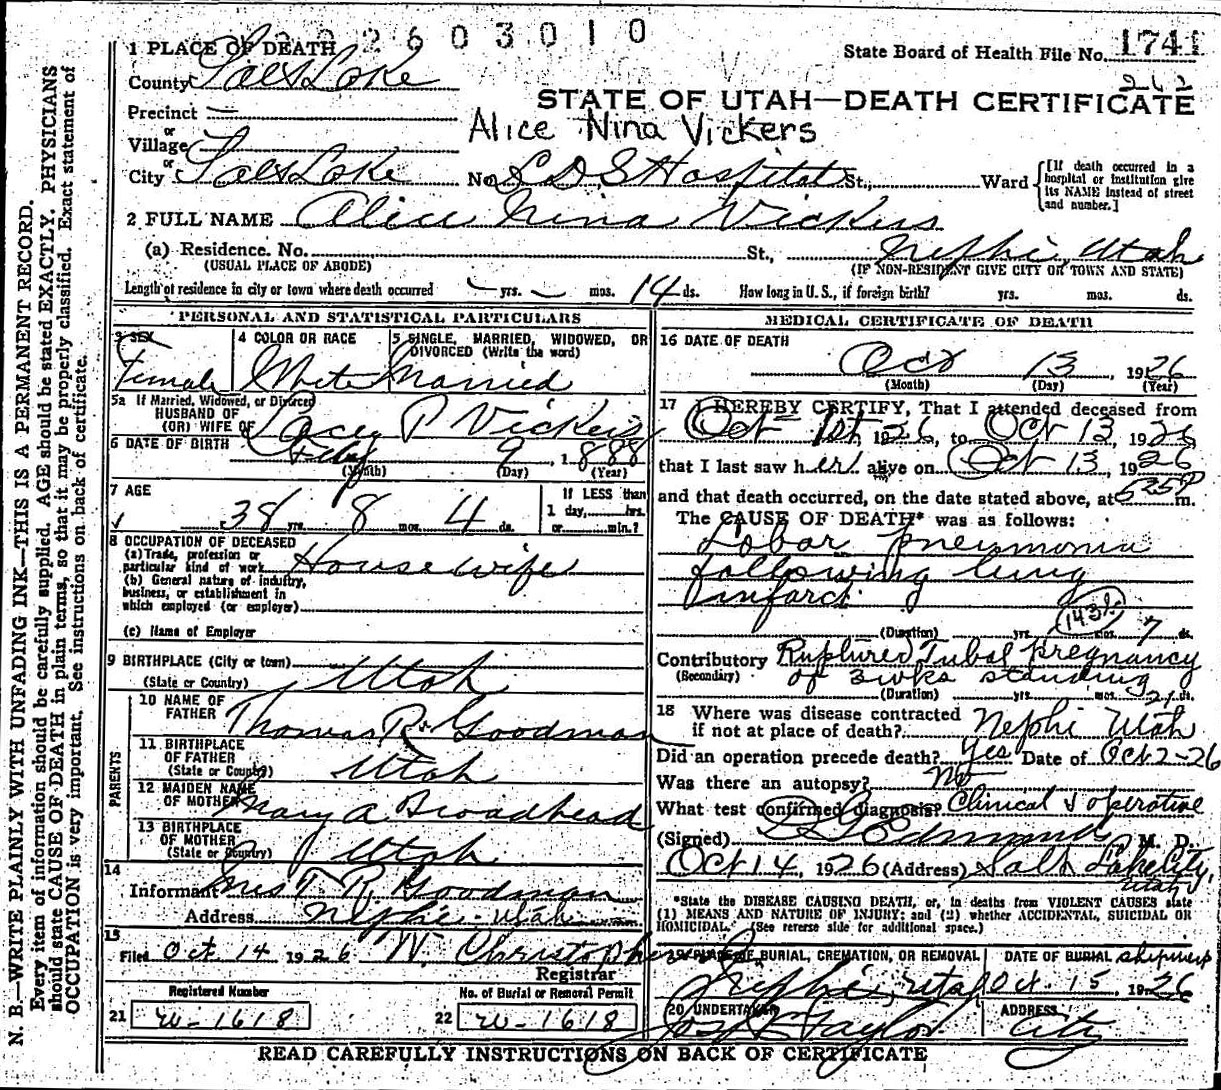 2603010
1 PLACE OF DEATH
State Board of Health File No. 1741
County Salt Lake
262
STATE OF UTAH—DEATH CERTIFICATE
Precinct
or
Alice Nina Vickers
Village
or
City Salt Lake No. L D S Hospital St., Ward
[If death occurred in a hospital or institution give its NAME instead of street and number.]
2 FULL NAME Alice Nina Vickers
(a) Residence. No. St., Nephi, Utah
(USUAL PLACE OF ABODE) (IF NON-RESIDENT GIVE CITY OR TOWN AND STATE)
Length of residence in city or town where death occurred — yrs. — mos. 14 ds. How long in U. S., if foreign birth? yrs. mos. ds.
PERSONAL AND STATISTICAL PARTICULARS
3 SEX
Female
4 COLOR OR RACE
White
5 SINGLE, MARRIED, WIDOWED, OR DIVORCED (Write the word)
Married
5a If Married, Widowed, or Divorced
HUSBAND OF
(OR) WIFE OF Lacey P Vickers
6 DATE OF BIRTH Feby 9, 1888
(Month) (Day) (Year)
7 AGE
38 yrs. 8 mos. 4 ds.
If LESS than
1 day, hrs.
or min.?
8 OCCUPATION OF DECEASED
(a) Trade, profession or
particular kind of work Housewife
(b) General nature of industry,
business, or establishment in
which employed (or employer)
(c) Name of Employer
9 BIRTHPLACE (City or town)
(State or Country) Utah
PARENTS
10 NAME OF
FATHER Thomas R Goodman
11 BIRTHPLACE
OF FATHER
(State or County) Utah
12 MAIDEN NAME
OF MOTHER Mary A Broadhead
13 BIRTHPLACE
OF MOTHER
(State or Country) Utah
14
Informant Mrs T. R. Goodman
Address Nephi - Utah
15
Filed Oct 14 1926 W. Christopherson
Registrar
Registered Number
21 w-1618
No. of Burial or Removal Permit
22 w-1618
MEDICAL CERTIFICATE OF DEATH
16 DATE OF DEATH
Oct 13, 1926
(Month) (Day) (Year)
17 I HEREBY CERTIFY, That I attended deceased from
Oct 1st, 1926, to Oct 13, 1926
that I last saw her alive on Oct 13, 1926
and that death occurred, on the date stated above, at 525P m.
The CAUSE OF DEATH* was as follows:
Lobar pneumonia
following lung
infarct.
143
(Duration) yrs. mos. 7 ds.
Contributory Ruptured Tubal pregnancy
(Secondary) of 3 wks standing
(Duration) yrs. mos. 21 ds.
18 Where was disease contracted
if not at place of death? Nephi Utah
Did an operation precede death? Yes Date of Oct 2-26
Was there an autopsy? No
What test confirmed diagnosis? Clinical & operative
(Signed) Edmunds M. D.
Oct 14, 1926 (Address) Salt Lake City,
Utah
*State the DISEASE CAUSING DEATH, or, in deaths from VIOLENT CAUSES state
(1) MEANS AND NATURE OF INJURY; and (2) whether ACCIDENTAL, SUICIDAL OR
HOMICIDAL. (See reverse side for additional space.)
19 PLACE OF BURIAL, CREMATION, OR REMOVAL
Nephi, Utah
DATE OF BURIAL shipment
Oct. 15, 1926
20 UNDERTAKER
Jos E Taylor
ADDRESS
City
READ CAREFULLY INSTRUCTIONS ON BACK OF CERTIFICATE
N. B.—WRITE PLAINLY WITH UNFADING INK—THIS IS A PERMANENT RECORD.
Every item of information should be carefully supplied. AGE should be stated EXACTLY. PHYSICIANS
should state CAUSE OF DEATH in plain terms, so that it may be properly classified. Exact statement of
OCCUPATION is very important. See instructions on back of certificate.